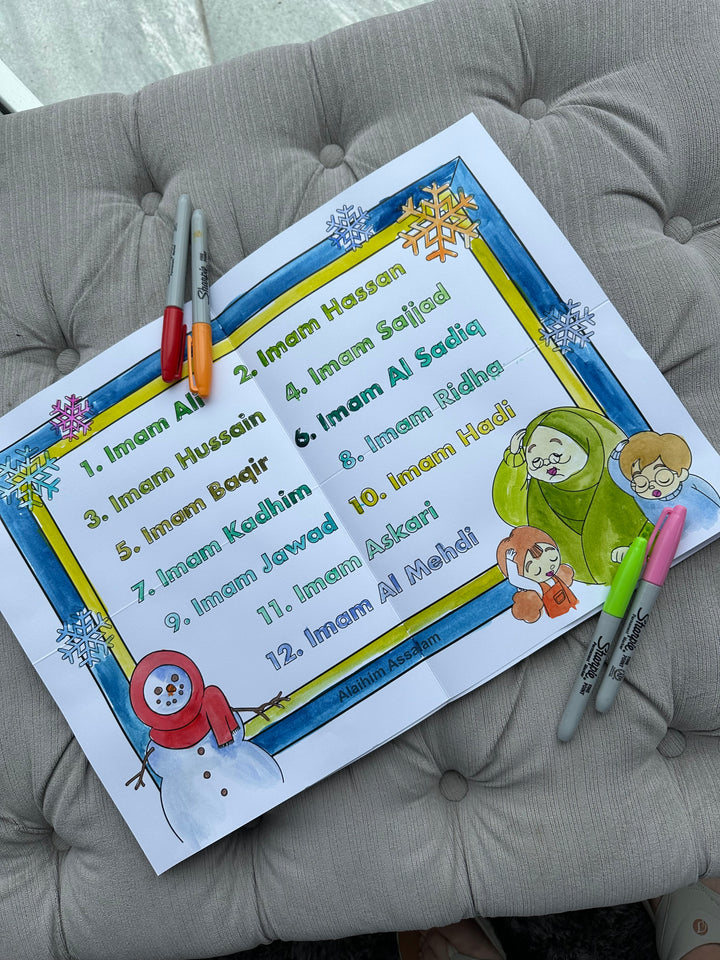 1. Imam Ali
2. Imam Hassan
3. Imam Hussain
4. Imam Sajjad
5. Imam Baqir
6. Imam Al Sadiq
7. Imam Kadhim
8. Imam Ridha
9. Imam Jawad
10. Imam Hadi
11. Imam Askari
12. Imam Al Mehdi
Alaihim Assalam
Sharpie
Sharpie
Sharpie